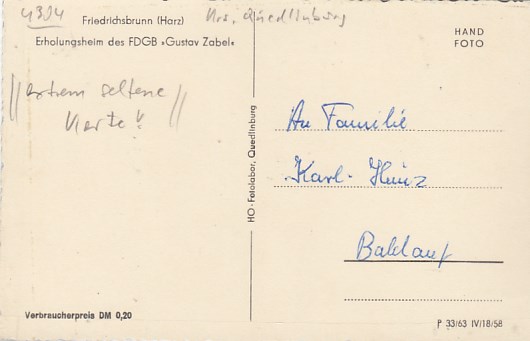 4304
Krs. Quedlinburg
Friedrichsbrunn (Harz)
Erholungsheim des FDGB »Gustav Zabel«
HAND
FOTO
//extrem seltene //
Karte!
HO-Fotolabor, Quedlinburg
An Familie
Karl-Heinz
Baldauf
Verbraucherpreis DM 0,20
P 33/63 IV/18/58